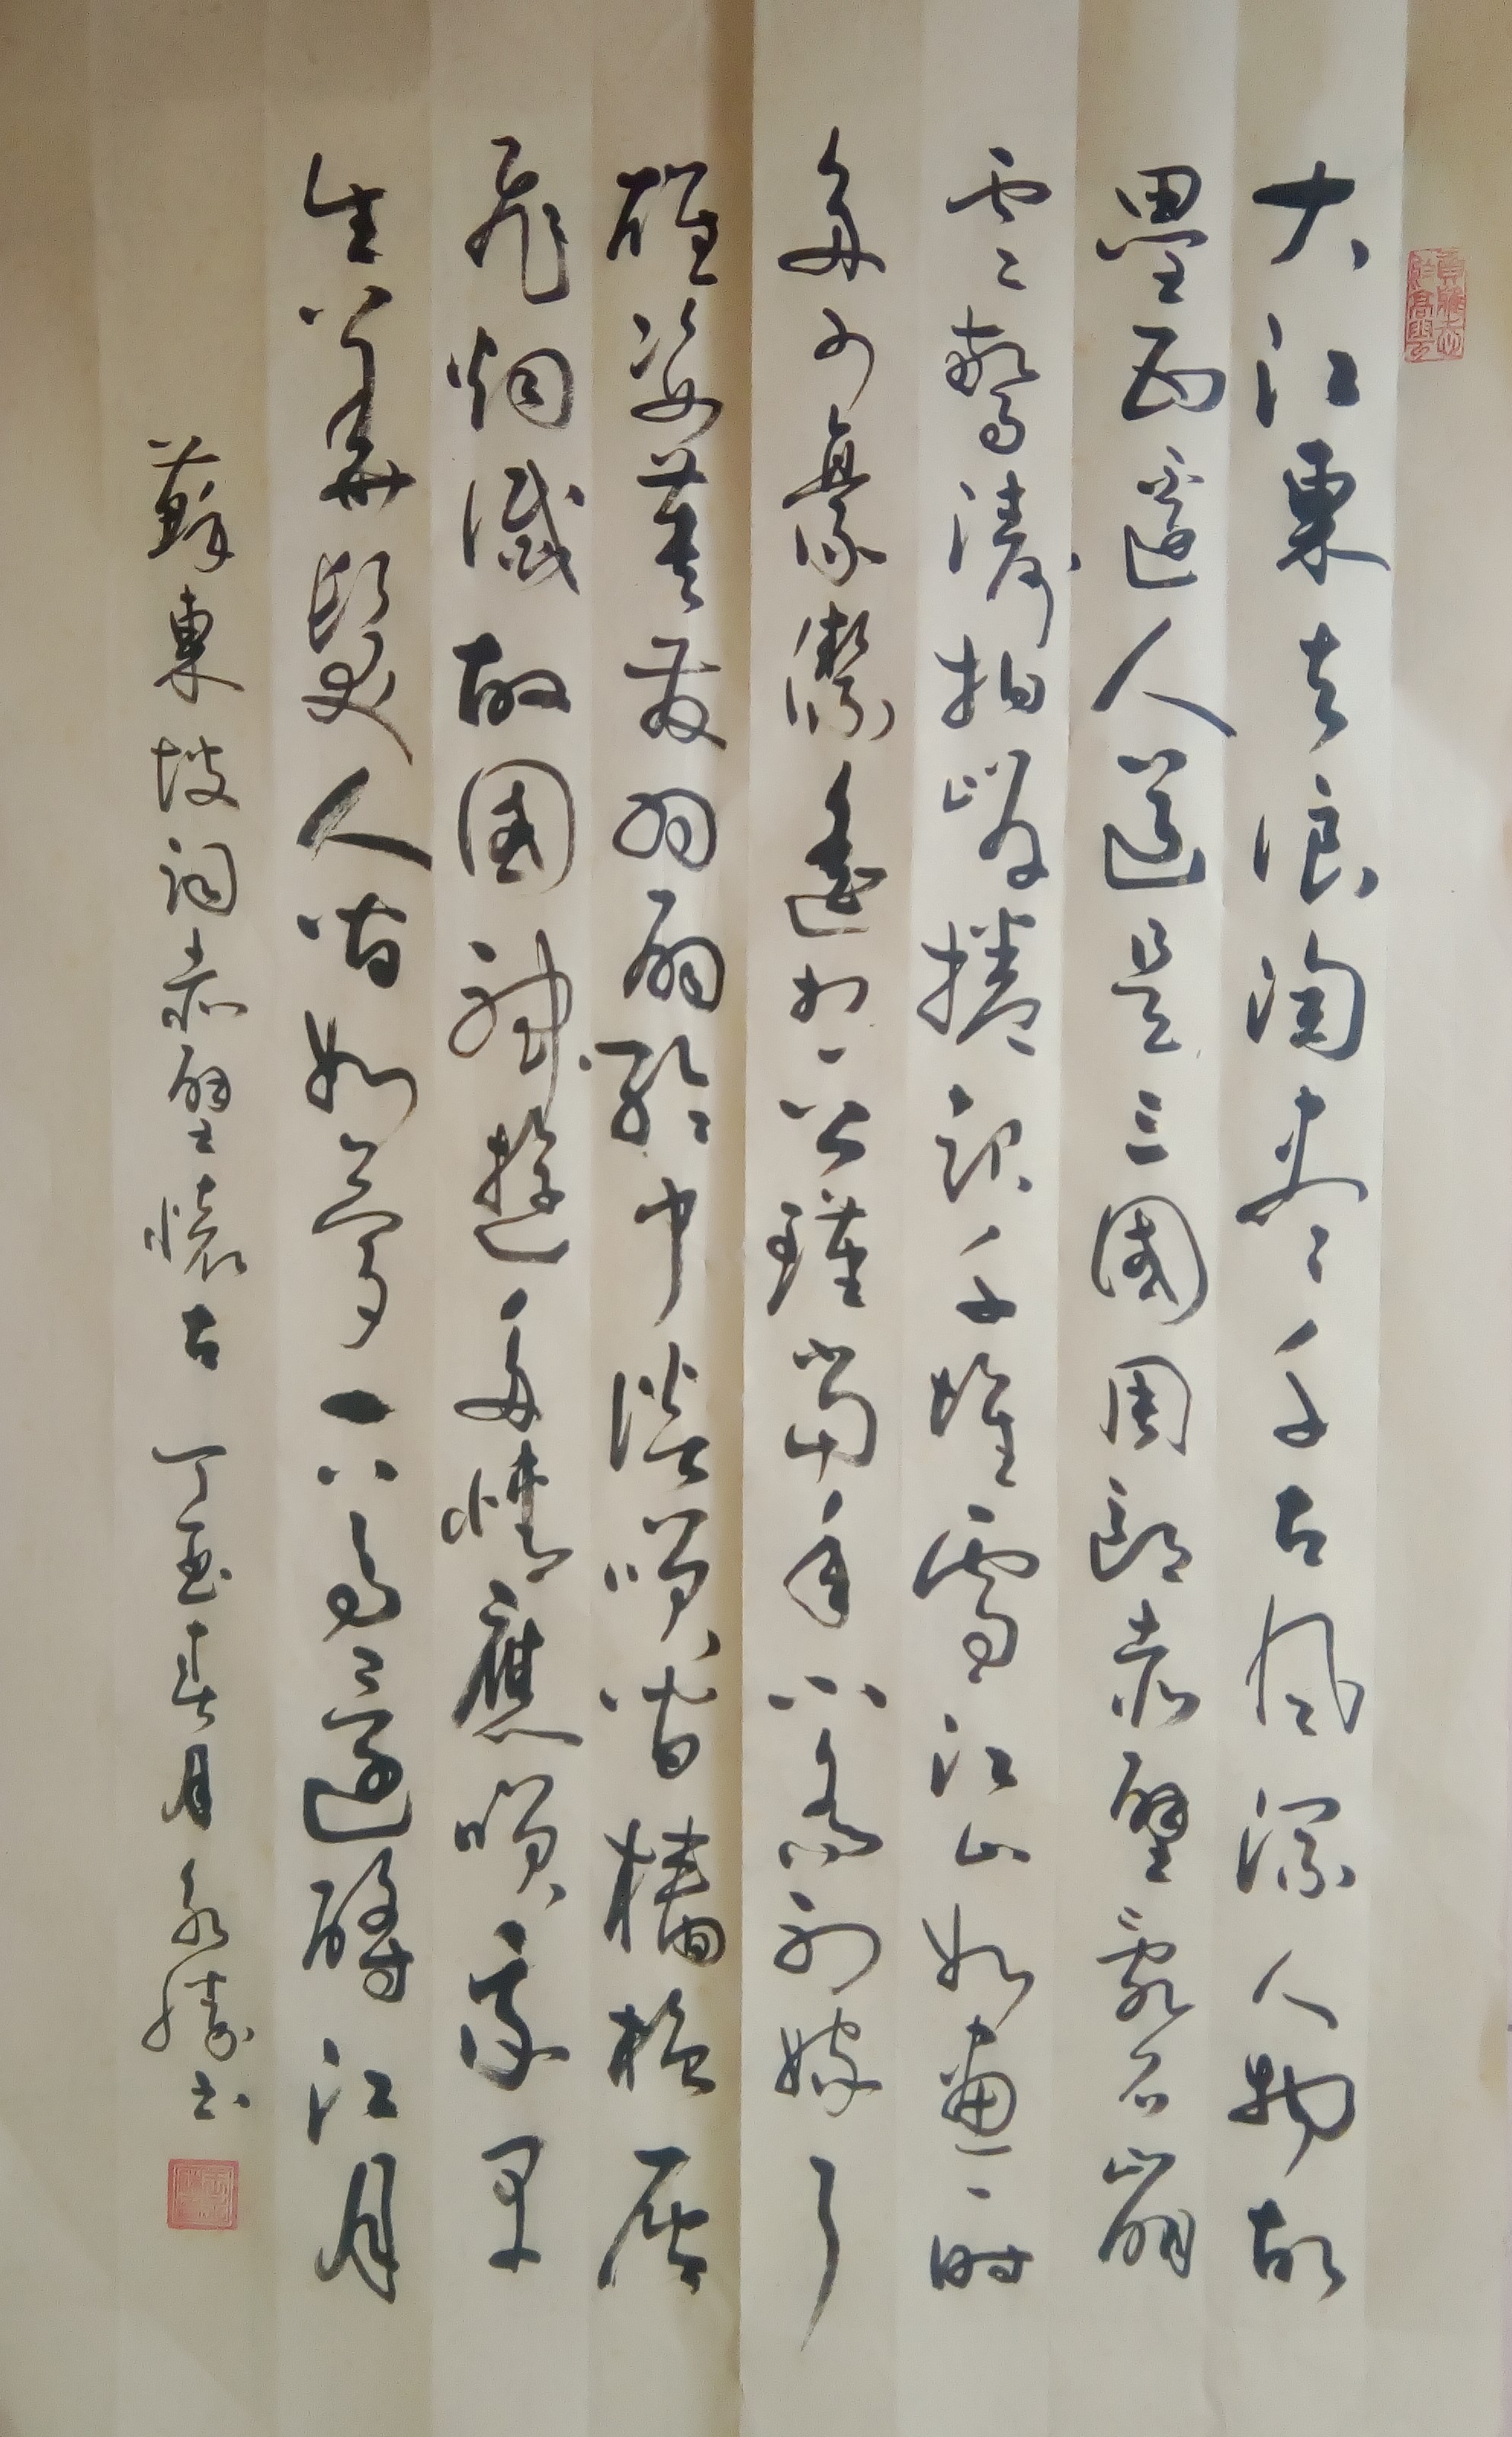 大江東去浪淘盡千古風流人物故
壘西邊人道是三國周郎赤壁亂石崩
雲驚濤拍岸捲起千堆雪江山如畫一時
多少豪傑遙想公瑾當年小喬初嫁了
雄姿英發羽扇綸巾談笑間檣櫓灰
飛烟滅故國神遊多情應笑我早
生華髮人間如夢一尊還酹江月
蘇東坡詞赤壁懷古 丁酉春月 永勝書